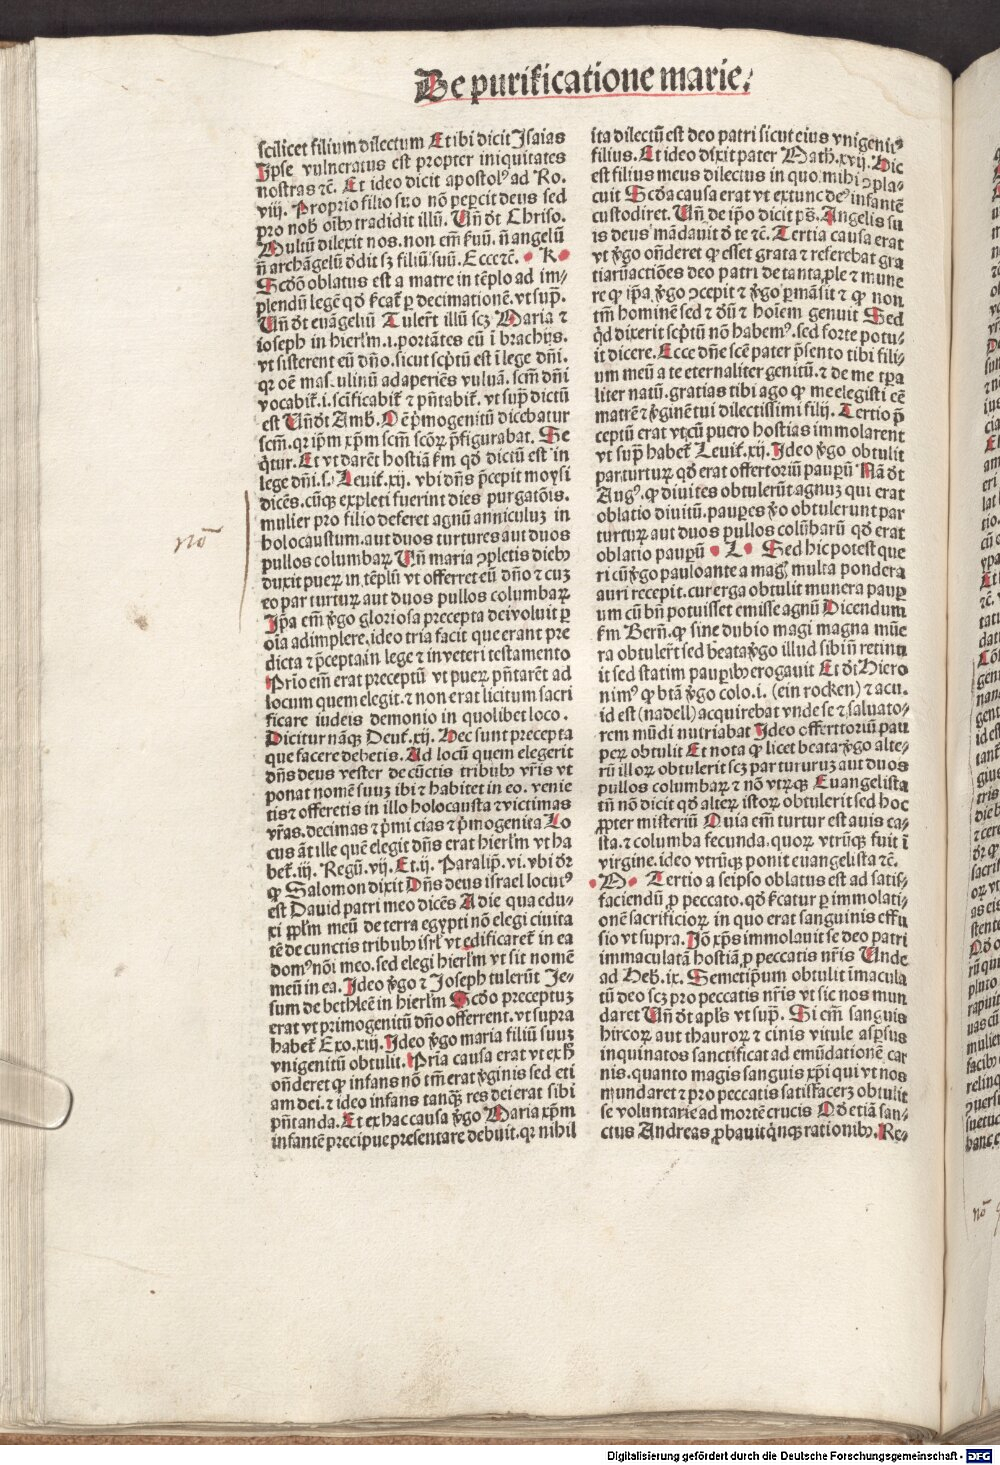 De purificatione marie.
scilicet filium dilectum Et ibi dicit Isaias
Ipse vulneratus est propter iniquitates
nostras ⁊c̄. Et ideo dicit apostol⁹ ad Ro.
viij. Proprio filio suo nō peꝑcit deus sed
pro nob̄ oīb⁹ tradidit illū. Uñ d̄t Chriso.
Multū dilexit nos. non em̄ ẜuū. ñ angelū
ñ archāgelū d̄dit sꝫ filiū suū. Ecce ⁊c̄. • K •
Scd̄o oblatus est a matre in tēplo ad im-
plendū legē qd̄ fic̄at̄ ꝑ decimationē. vt sup̄.
Uñ d̄t euāgeliū Tuler̄t illū scꝫ Maria ⁊
ioseph in hierl̄m .i. portātes eū ī brachijs.
vt sisterent eū dn̄o. sicut scp̄tū est ī lege dn̄i.
qꝛ oē masculinū adaperiēs vuluā. scm̄ dn̄i
vocabit̄ .i. scīficabit̄ ⁊ pn̄tabit̄. vt sup̄ dictū
est Uñ d̄t Amb. Oē p̄mogenitū dicebatur
scm̄. qꝛ ip̄m xp̄m scm̄ scōꝝ p̄figurabat. Se
q̄tur. Et vt darēt hostiā ẜm qd̄ dictū est in
lege dn̄i .s. Leuit̄. xij. vbi dn̄s p̄cepit moysi
dicēs. cūqꝫ expleti fuerint dies purgatōis.
mulier pro filio deferet agnū anniculuꝫ in
holocaustum. aut duos turtures aut duos
pullos columbaꝝ Uñ maria ꝯpletis dieb⁹
duxit pueꝝ in tēplū vt offerret eū dn̄o ⁊ cuꝫ
eo par turtuꝝ aut duos pullos columbaꝝ
Ip̄a em̄ v̄go gloriosa precepta dei voluit ꝑ
oīa adimplere. ideo tria facit que erant pre
dicta ⁊ p̄cepta in lege ⁊ in veteri testamento
Prīo em̄ erat preceptū vt pueꝝ pn̄tarēt ad
locum quem elegit. ⁊ non erat licitum sacri
ficare iudeis demonio in quolibet loco.
Dicitur nāqꝫ Deut̄. xij. Hec sunt precepta
que facere debetis. Ad locū quem elegerit
dn̄s deus vester de cūctis tribub⁹ vr̄is vt
ponat nomē suuꝫ ibi ⁊ habitet in eo. venie
tis ⁊ offeretis in illo holocausta ⁊ victimas
vr̄as. decimas ⁊ p̄mi cias ⁊ p̄mogenita Lo
cus āt ille quē elegit dn̄s erat hierl̄m vt ha
bet̄. iij. Regū. vij. Et .ij. Paralip̄. vi. vbi dꝛ
ꝙ Salomon dixit Dn̄s deus israel locut⁹
est Dauid patri meo dicēs A die qua edu-
xi ppl̄m meū de terra egypti nō elegi ciuita
tē de cunctis tribub⁹ isrl̄ vt edificaret̄ in ea
dom⁹ nōi meo. sed elegi hierl̄m vt sit nomē
meū in ea. Ideo v̄go ⁊ Ioseph tulerūt Je-
sum de bethleē in hierl̄m Scd̄o preceptuꝫ
erat vt primogenitū dn̄o offerrent. vt supra
habet̄ Exo. xiij. Ideo v̄go maria filiū suuꝫ
vnigenitū obtulit. Pria causa erat vt ex h̄
on̄deret ꝙ infans nō tm̄ erat v̄ginis sed eti
am dei. ⁊ ideo infans tanqꝫ res dei erat sibi
pn̄tanda. Et ex hac causa v̄go Maria xp̄m
infantē precipue presentare debuit. qꝛ nihil
nō
ita dilectū est deo patri sicut eius vnigenit⁹
filius. Et ideo dixit pater Math. xvij. Hic
est filius meus dilectus in quo mihi ꝯpla-
cuit Scd̄a causa erat vt ex tunc de⁹ infantē
custodiret. Uñ de ip̄o dicit ps̄. Angelis su
is deus mādauit d̄ te ⁊c̄. Tertia causa erat
vt v̄go on̄deret ꝙ esset grata ⁊ referebat gra
tiaꝝ actiōes deo patri de tanta ꝓle ⁊ mune
re ꝙ ip̄a v̄go ꝯcepit ⁊ v̄go ꝑmāsit ⁊ ꝙ non
tm̄ hominē sed ⁊ dn̄ ⁊ hoīem genuit Sed
qd̄ dixerit scp̄tū nō habem⁹. sed forte potu-
it dicere. Ecce dn̄e scē pater p̄sento tibi fili-
um meū a te eternaliter genitū ⁊ de me tp̄ra
liter natū. gratias tibi ago ꝙ me elegisti eē
matrē ⁊ v̄ginē tui dilectissimi filij. Tertio p̄
ceptū erat vt cū puero hostias immolarent
vt sup̄ habet̄ Leuit̄. xij. Ideo v̄go obtulit
par turtuꝝ qd̄ erat offertoriū pauꝑū Nā d̄t
Aug⁹. ꝙ diuites obtulerūt agnuꝫ qui erat
oblatio diuitū. pauꝑes v̄o obtulerunt par
turtuꝝ aut duos pullos colūbarū qd̄ erat
oblatio pauꝑū • L • Sed hic potest que
ri cū v̄go paulo ante a magꝭ multa pondera
auri recepit. cur erga obtulit munera pauꝑ
um cū bn̄ potuisset emisse agnū Dicendum
ẜm Bern̄. ꝙ sine dubio magi magna mūe
ra obtuler̄t sed beata v̄go illud sibi nō retinu
it sed statim pauꝑib⁹ erogauit Et dt̄ Hiero
nim⁹ ꝙ btā v̄go colo .i. (ein rocken) ⁊ acu.
id est (nadell) acquirebat vnde se ⁊ saluato-
rem mūdi nutriabat Ideo offerttoriū pau
peꝝ obtulit Et nota ꝙ licet beata v̄go alte-
rū illoꝝ obtulerit scꝫ par turturuꝫ aut duos
pullos columbaꝝ ⁊ nō vtrūqꝫ Euangelista
tn̄ non dicit qd̄ alteꝝ istoꝝ obtulerit sed hoc
ꝓpter misteriū Quia em̄ turtur est auis ca-
sta. ⁊ columba fecunda. quoꝝ vtrūqꝫ fuit ī
virgine. ideo vtrūqꝫ ponit euangelista ⁊c̄.
• M • Tertio a seipso oblatus est ad satis-
faciendū ꝓ peccato. qd̄ fic̄atur ꝑ immolati-
onē sacrificioꝝ in quo erat sanguinis effu
sio vt supra. Iō xp̄s immolauit se deo patri
immaculatā hostiā ꝓ peccatis nr̄is Unde
ad Heb. ix. Semetip̄um obtulit īmacula
tū deo scꝫ pro peccatis nr̄is vt sic nos mun
daret Uñ d̄t apl̄s vt sup̄. Si em̄ sanguis
hircoꝝ aut thauroꝝ ⁊ cinis vitule aspersus
inquinatos sanctificat ad emūdationē car
nis. quanto magis sanguis xp̄i qui vt nos
mundaret ⁊ pro peccatis satisfaceꝫ obtulit
se voluntarie ad mortē crucis Qd̄ etiā san-
ctus Andreas ꝓbauit q̄nqꝫ rationib⁹. Re-
Digitalisierung gefördert durch die Deutsche Forschungsgemeinschaft - DFG